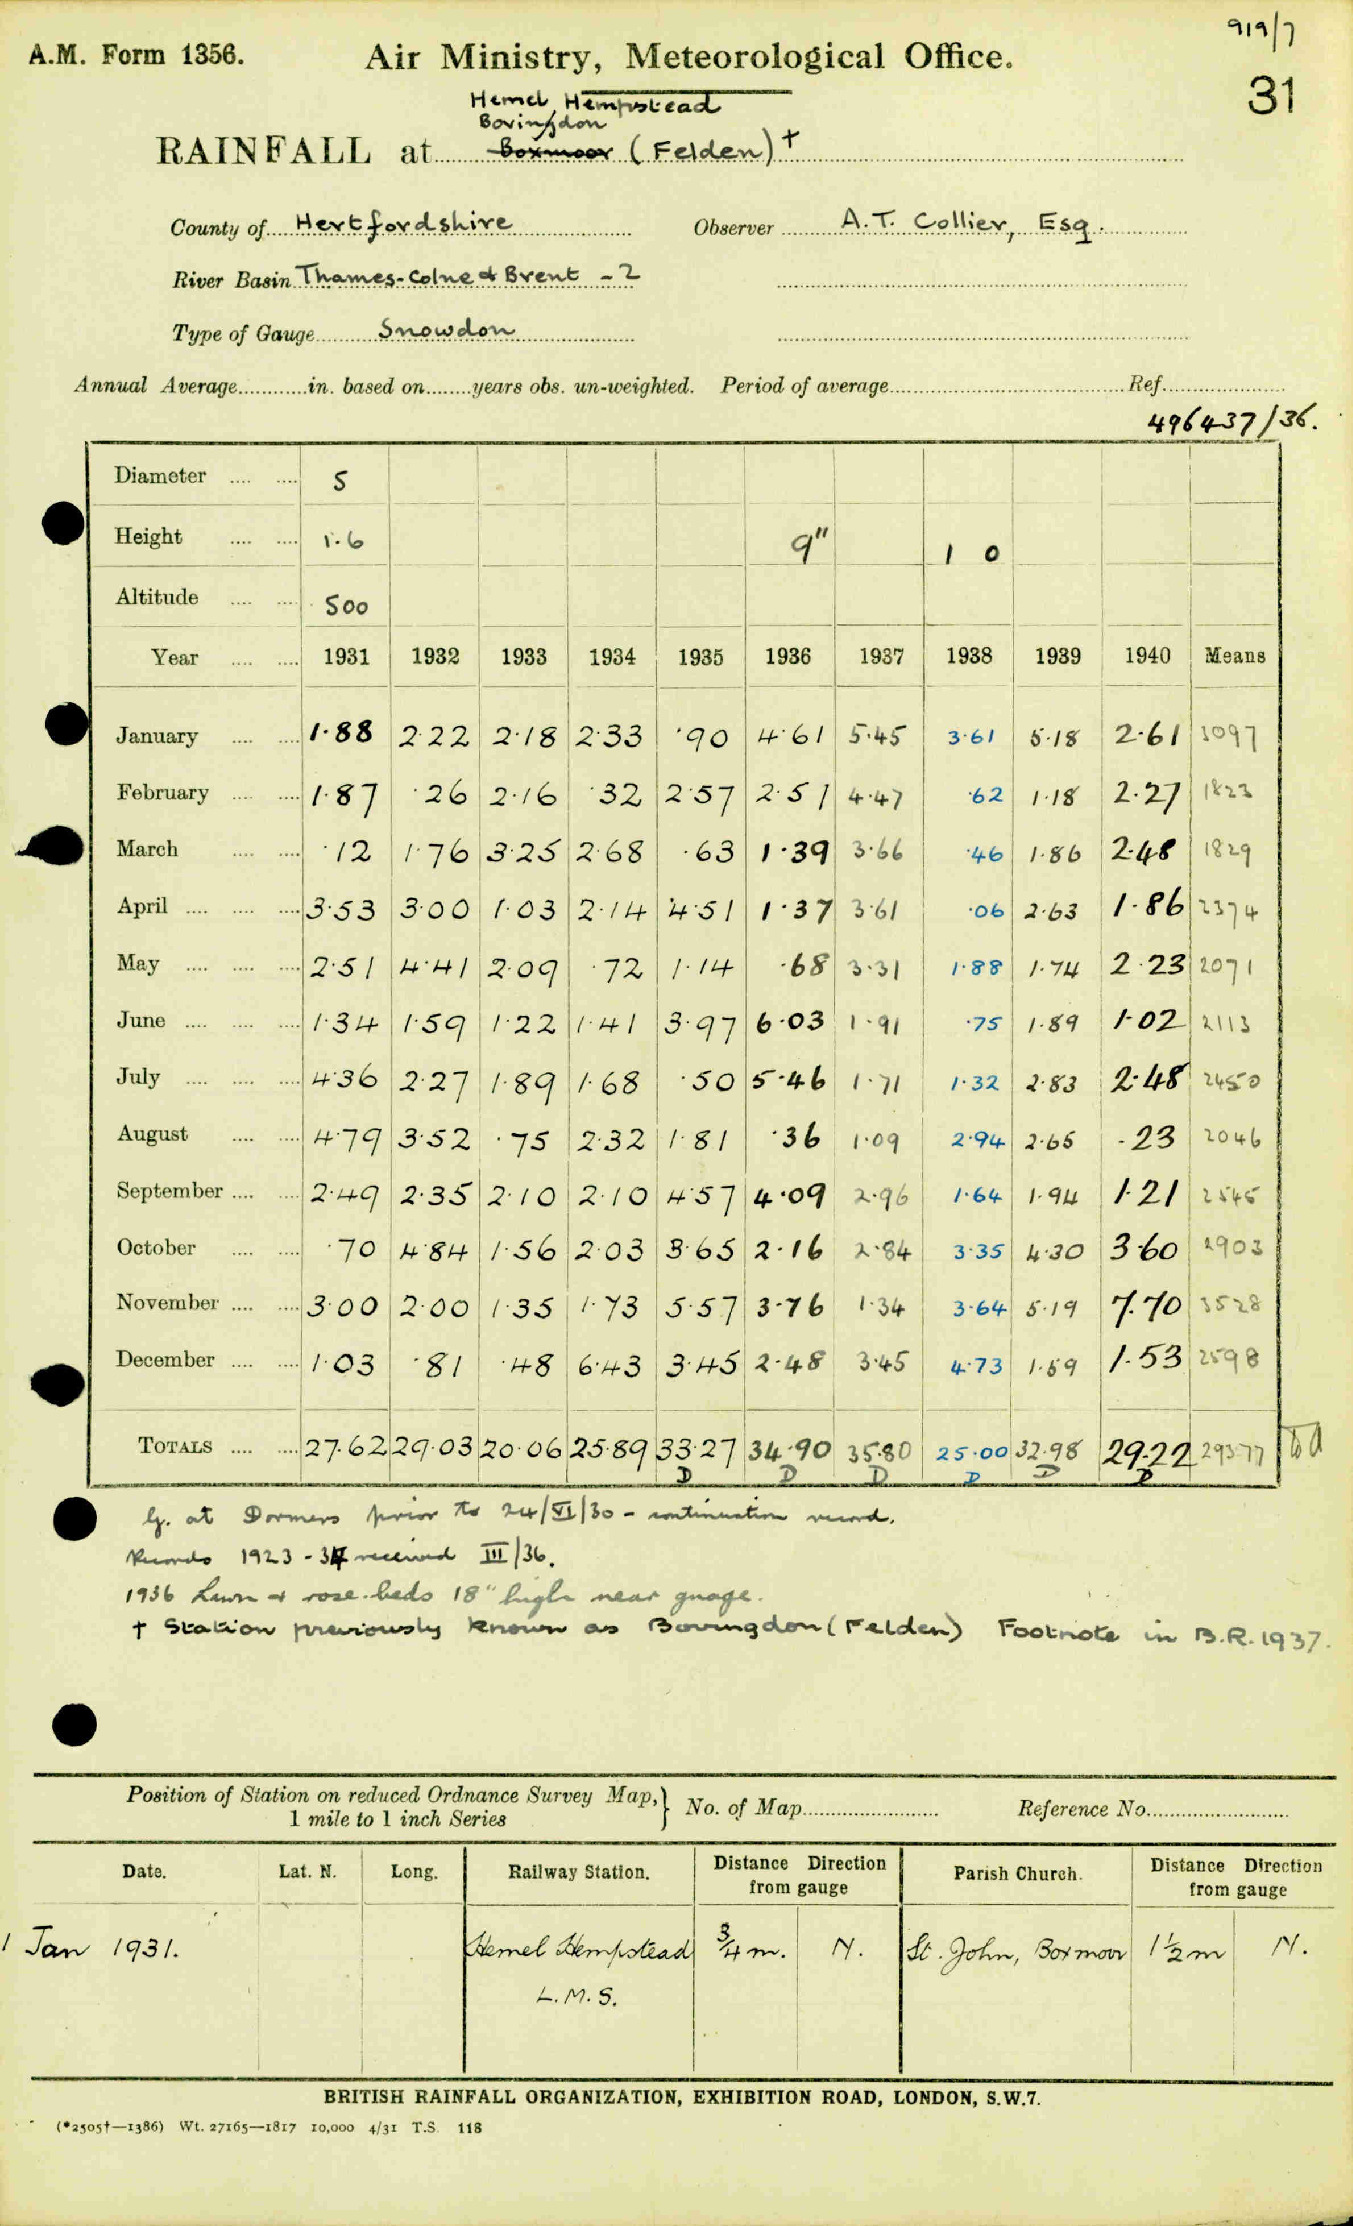 919/7
A.M. Form 1356. Air Ministry, Meteorological Office.
31
Hemel Hempstead
Bovingdon
RAINFALL at Boxmoor (Felden) †
County of Hertfordshire Observer A.T. Collier, Esq.
River Basin Thames-Colne & Brent - 2
Type of Gauge Snowdon
Annual Average in. based on years obs. un-weighted. Period of average Ref.
496437/36.
Diameter 5
Height 1.6 9" 1 0
Altitude 500
Year 1931 1932 1933 1934 1935 1936 1937 1938 1939 1940 Means
January 1.88 2.22 2.18 2.33 .90 4.61 5.45 3.61 5.18 2.61 3097
February 1.87 .26 2.16 .32 2.57 2.51 4.47 .62 1.18 2.27 1823
March .12 1.76 3.25 2.68 .63 1.39 3.66 .46 1.86 2.48 1829
April 3.53 3.00 1.03 2.14 4.51 1.37 3.61 .06 2.63 1.86 2374
May 2.51 4.41 2.09 .72 1.14 .68 3.31 1.88 1.74 2.23 2071
June 1.34 1.59 1.22 1.41 3.97 6.03 1.91 .75 1.89 1.02 2113
July 4.36 2.27 1.89 1.68 .50 5.46 1.71 1.32 2.83 2.48 2450
August 4.79 3.52 .75 2.32 1.81 .36 1.09 2.94 2.65 .23 2046
September 2.49 2.35 2.10 2.10 4.57 4.09 2.96 1.64 1.94 1.21 2545
October .70 4.84 1.56 2.03 3.65 2.16 2.84 3.35 4.30 3.60 2903
November 3.00 2.00 1.35 1.73 5.57 3.76 1.34 3.64 5.19 7.70 3528
December 1.03 .81 .48 6.43 3.45 2.48 3.45 4.73 1.59 1.53 2598
TOTALS 27.62 29.03 20.06 25.89 33.27 34.90 35.80 25.00 32.98 29.22 293.77
D D D D D D
G. at Dormers prior to 24/VI/30 - continuation record.
Records 1923 - 34 received III/36.
1936 Lawn & rose-beds 18" high near guage.
† Station previously known as Bovingdon (Felden) Footnote in B.R. 1937.
Position of Station on reduced Ordnance Survey Map, 1 mile to 1 inch Series } No. of Map Reference No.
Date. Lat. N. Long. Railway Station. Distance Direction from gauge Parish Church. Distance Direction from gauge
1 Jan 1931. Hemel Hempstead 3/4 m. N. St. John, Boxmoor 1 1/2 m N.
L.M.S.
BRITISH RAINFALL ORGANIZATION, EXHIBITION ROAD, LONDON, S.W.7.
(*2505†—1386) Wt. 27165—1817 10,000 4/31 T.S. 118